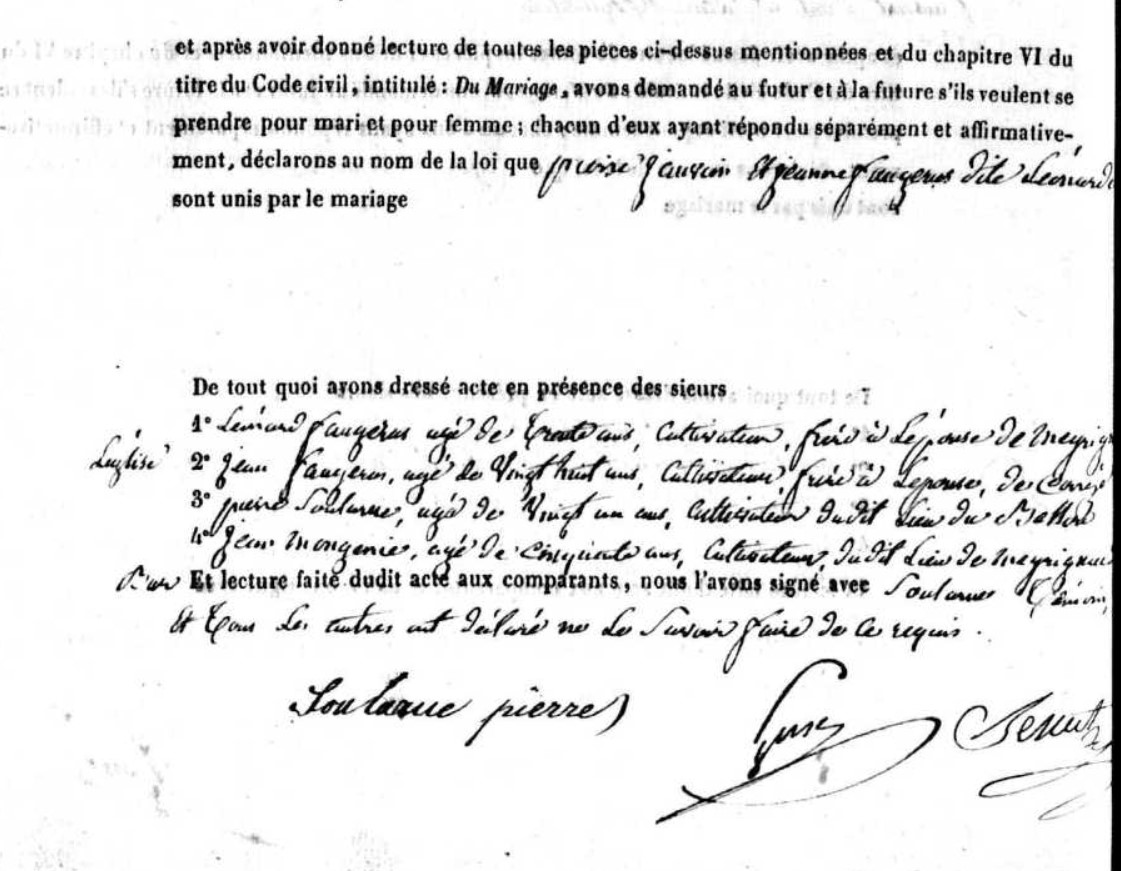 et après avoir donné lecture de toutes les pieces ci-dessus mentionnées et du chapitre VI du
titre du Code civil, intitulé : Du Mariage, avons demandé au futur et à la future s'ils veulent se
prendre pour mari et pour femme ; chacun d'eux ayant répondu séparément et affirmative-
ment, déclarons au nom de la loi que pierre et jeanne faugeras dite Léonarde
sont unis par le mariage
De tout quoi avons dressé acte en présence des sieurs
1° Léonard faugeras agé de trente ans, Cultivateur, frère à Lépouse de meyrign
Léglise 2° jean faugeras, agé de Vingt huit ans, Cultivateur, frère à Lepouse, de
3° pierre Soularue, agé de Vingt un ans, Cultivateur dudit Lieu du
4° jean mongenie, agé de Cinquante ans, Cultivateur, dudit Lieu de meyrignac
Et lecture faite dudit acte aux comparants, nous l'avons signé avec Soularue témoin,
Et tous Les autres ont déclaré ne Le Savoir faire de Ce requis.
Soularue pierre